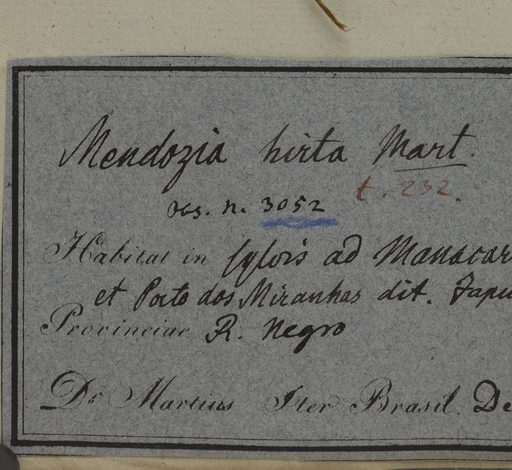 Mendozia hirta Mart.
t. 232.
Obs. n. 3052
Habitat in sylvis ad Manacar
et Porto dos Miranhas dit. Japu
Provinciae R. Negro
Dr. Martius Iter Brasil. De